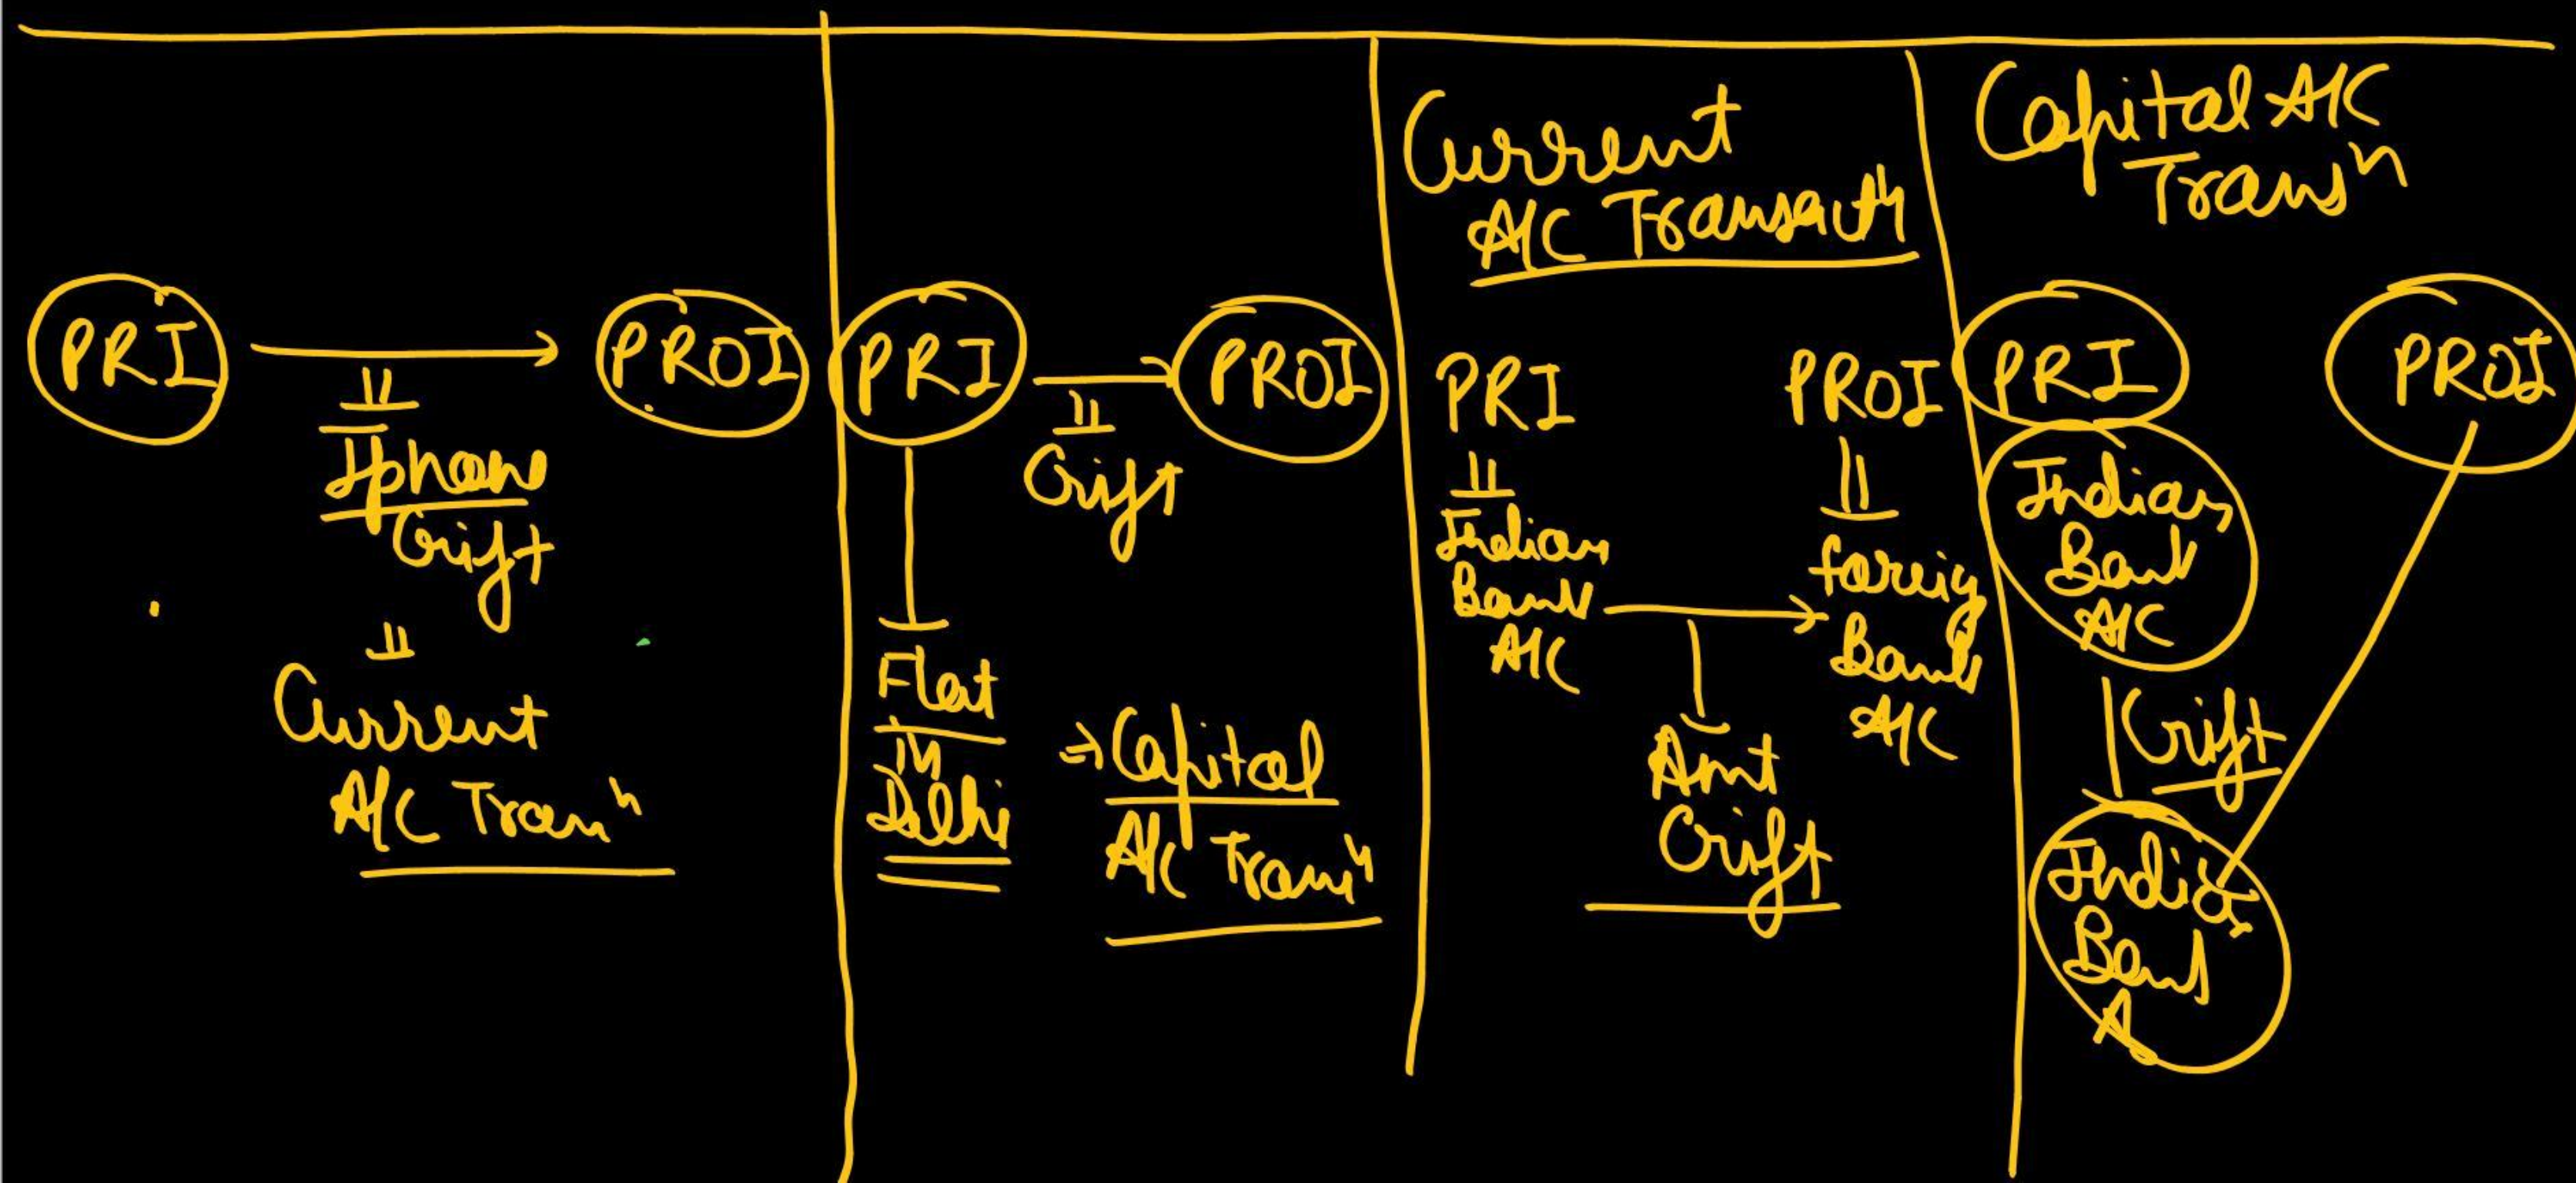 PRI
PROI
Iphone
Gift
Current
A/C Tranⁿ
PRI
PROI
Gift
Flat
in
Delhi
⇒ Capital
A/C Tranⁿ
Current
A/C Transactⁿ
PRI
PROI
Indian
Bank
A/C
foreig
Bank
A/C
Amt
Gift
Capital A/C
Transⁿ
PRI
PROI
Indian
Bank
A/C
Gift
Indian
Bank
A